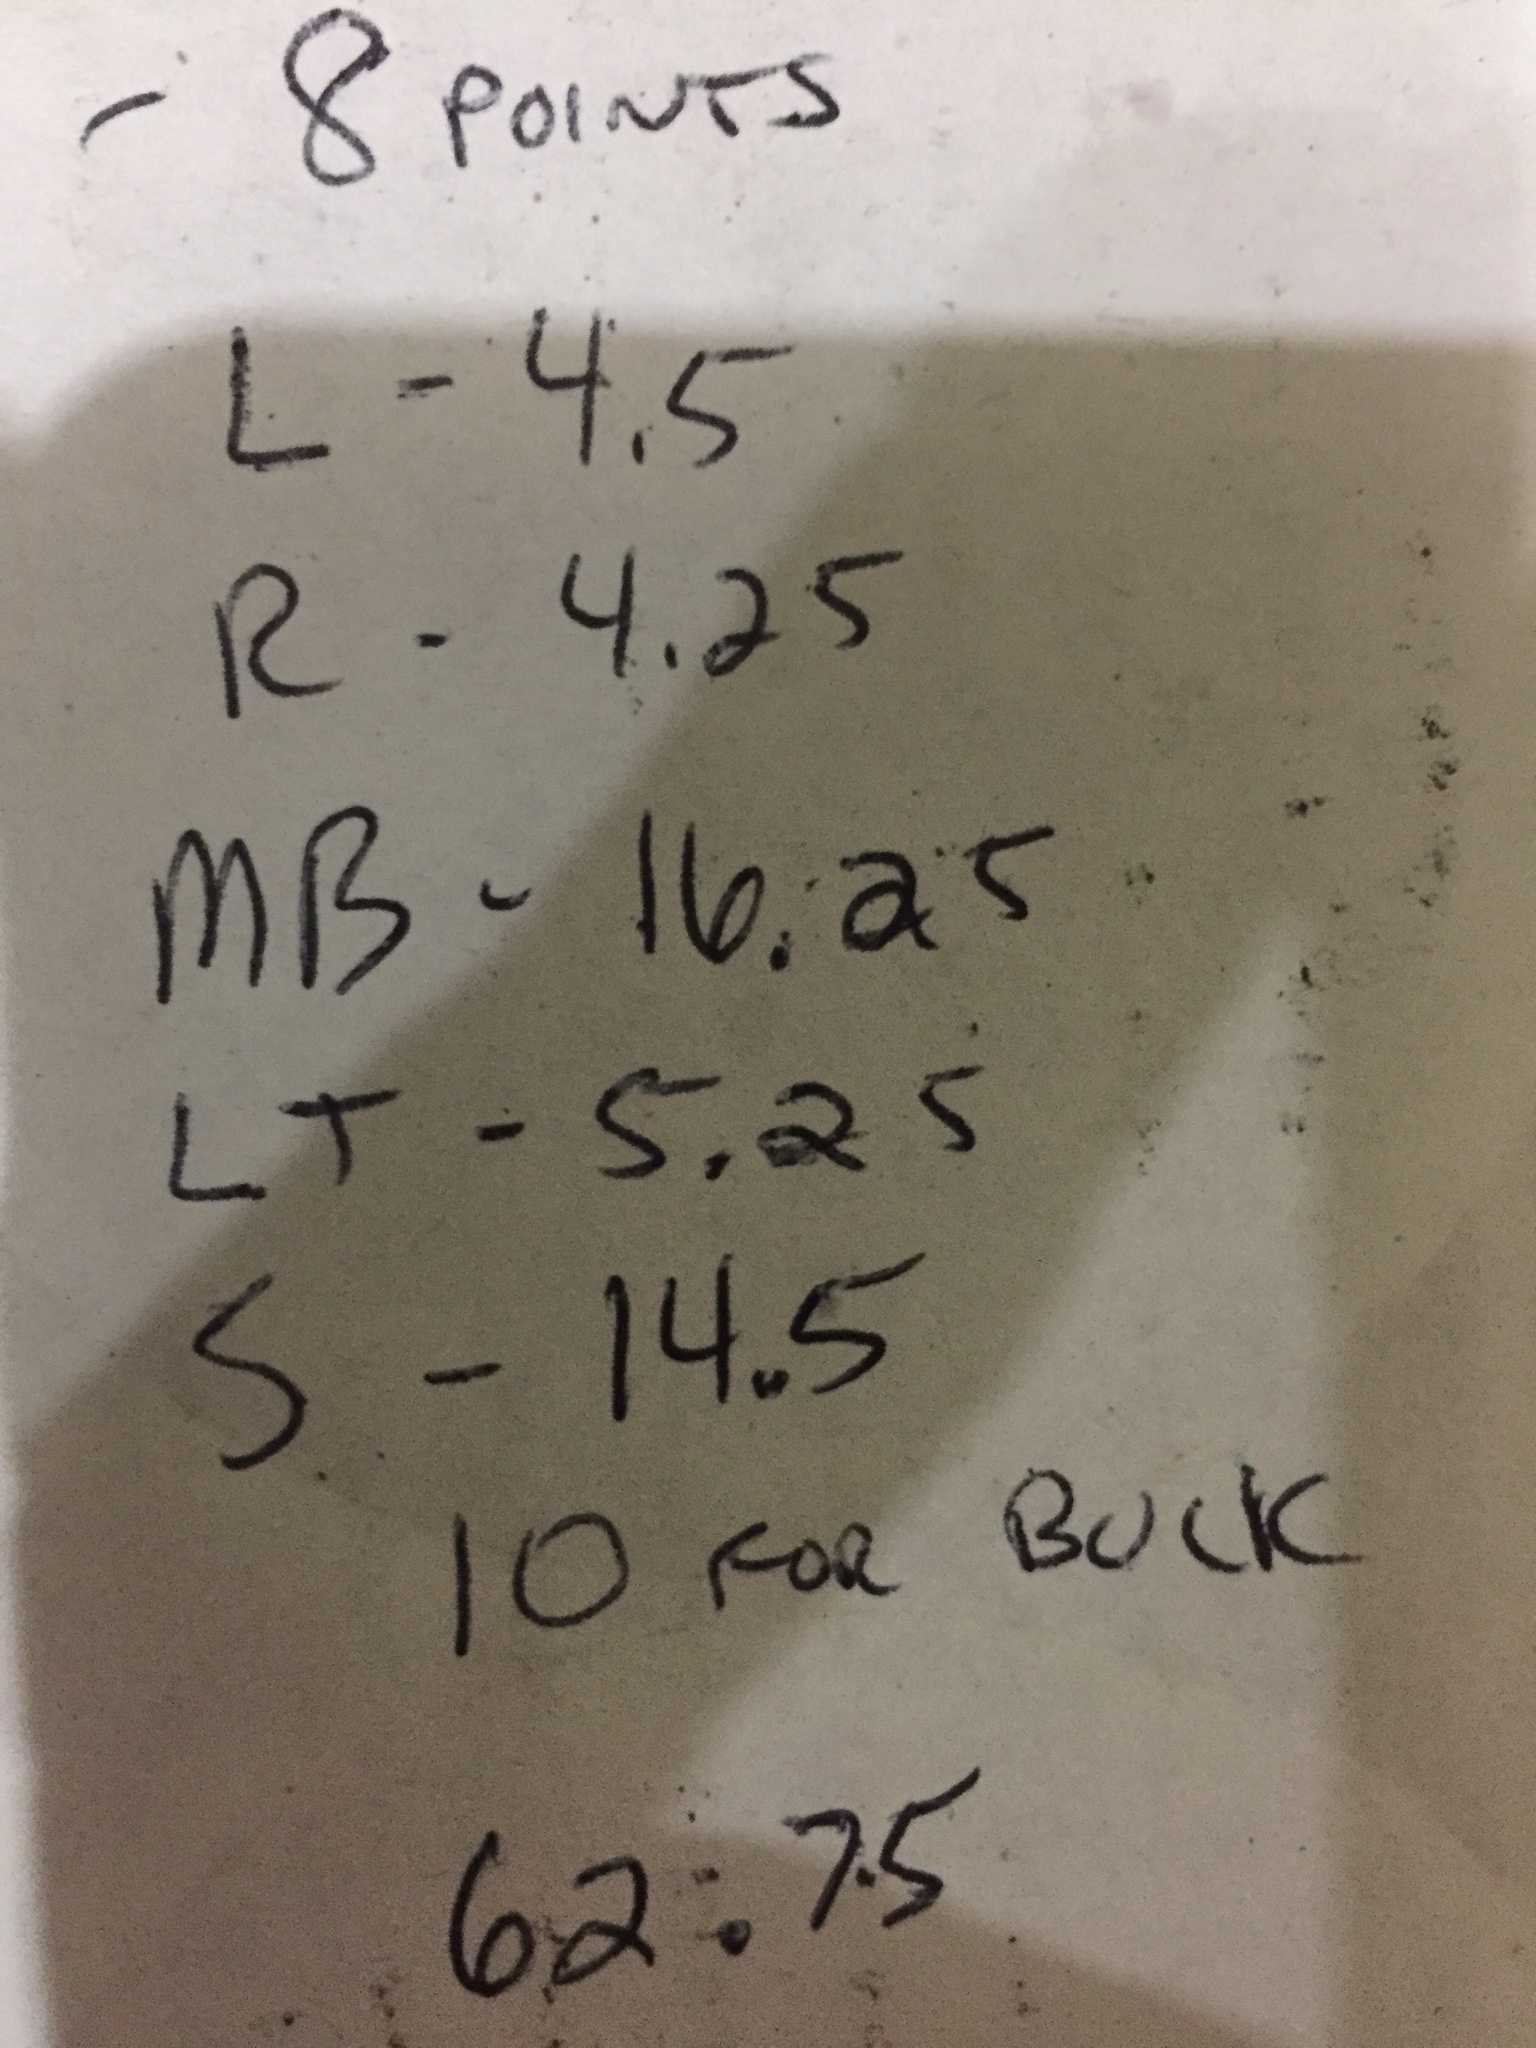 - 8 POINTS
L - 4.5
R - 4.25
MB - 16.25
LT - 5.25
S - 14.5
10 FOR BUCK
62.75